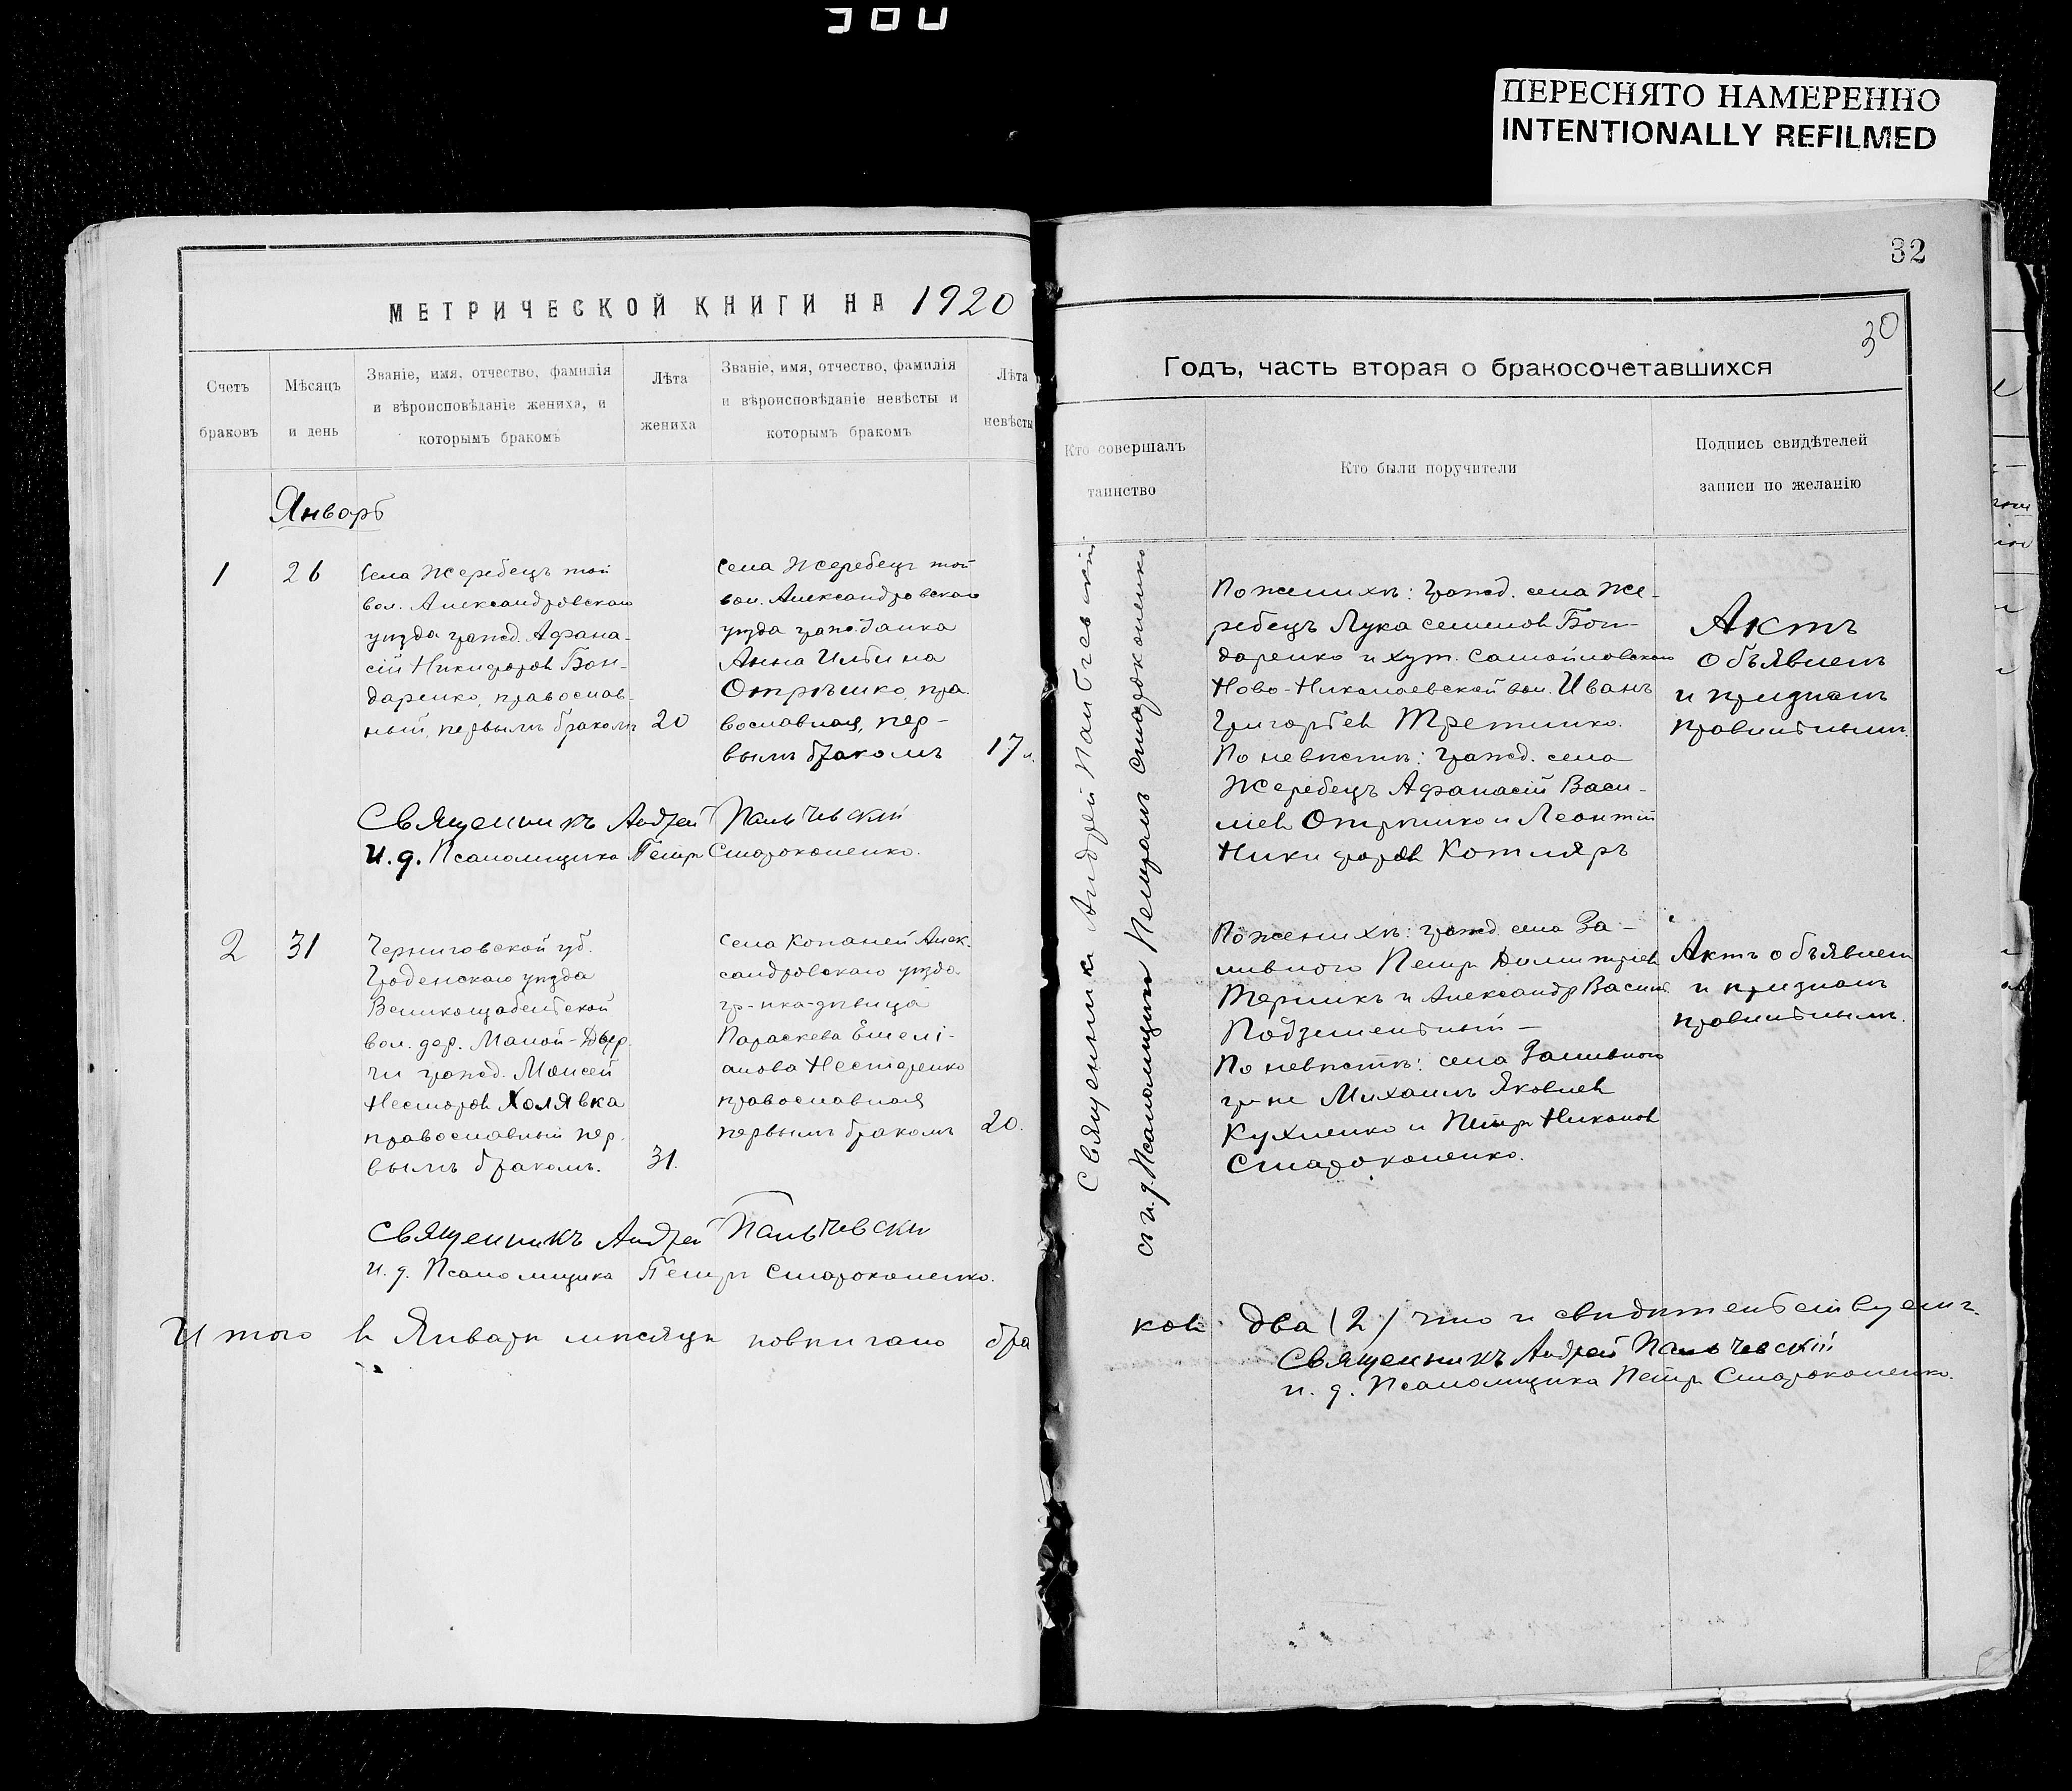 ПЕРЕСНЯТО НАМЕРЕННО
INTENTIONALLY REFILMED
МЕТРИЧЕСКОЙ КНИГИ НА 1920
Счетъ
браковъ
Мѣсяцъ
и день
Званіе, имя, отчество, фамилія
и вѣроисповѣданіе жениха, и
которымъ бракомъ
Лѣта
жениха
Званіе, имя, отчество, фамилія
и вѣроисповѣданіе невѣсты и
которымъ бракомъ
Лѣта
невѣсты
Январь
1
26
Села Жеребецъ той
вол. Александровскаго
уѣзда гражд. Афана-
сій Никифоровъ Бон-
даренко, православ-
ный, первымъ бракомъ
20
Села Жеребецъ той
вол. Александровскаго
уѣзда гражданка
Анна Ильина
Отрѣшко, пра-
вославная, пер-
вымъ бракомъ
17 л.
Священникъ Андрей Пальчевскій
И. д. Псаломщика Петръ Староконенко.
2
31
Черниговской губ.
уѣзда
вол. дер. Малой-
гражд. Моисей
Несторовъ Холявка
православный пер-
вымъ бракомъ.
31.
Села Копаней Алек-
сандровскаго уѣзда
гр-нка-дѣвица
Параскева Емелі-
анова Нестеренко
православная
первымъ бракомъ
20.
Священникъ Андрей Пальчевскій
и. д. Псаломщика Петръ Староконенко.
Итого въ Январѣ мѣсяцѣ повѣнчано бра
32
30
Годъ, часть вторая о бракосочетавшихся
Кто совершалъ
таинство
Кто были поручители
Подпись свидѣтелей
записи по желанію
Священникъ Андрей Пальчевскій
съ и. д. Псаломщика Петромъ Староконенко
По женихѣ: гражд. села Же-
ребецъ Лука Семеновъ Бон-
даренко и хут. Самойловскаго
Ново-Николаевской вол. Иванъ
Григорьевъ
По невѣстѣ: гражд. села
Жеребецъ Афанасій Васи-
льевъ Отрѣшко и Леонтій
Никифоровъ Котляръ
Актъ
объявленъ
и признанъ
правильнымъ.
По женихѣ: гражд. села За-
ливного Петръ Димитріевъ
и Александръ Васил.
По невѣстѣ: села Заливного
гр-не Михаилъ Яковлевъ
Кухленко и Петръ Никоновъ
Староконенко.
Актъ объявленъ
и признанъ
правильнымъ.
ковъ два (2) что и свидѣтельствуемъ.
Священникъ Андрей Пальчевскій
и. д. Псаломщика Петръ Староконенко.